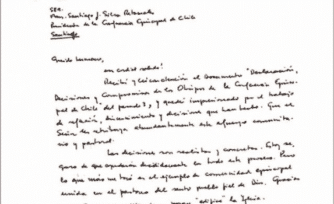 SER.
Mons. Santiago J. Silva Retamales
Presidente de la Conferencia Episcopal de Chile
Santiago
Querido hermano,
Recibí y leí con atención el documento "Declaración,
Decisiones y Compromisos de los Obispos de la Conferencia Episco-
pal de Chile" del pasado 3, y quedé impresionado por el trabajo
de reflexión, discernimiento y decisiones que han hecho. Que el
Señor les retribuya abundantemente este esfuerzo comunita-
rio y pastoral.
Las decisiones son realistas y concretas. Estoy se-
guro de que ayudarán decididamente en todo este proceso. Pero
lo que más me tocó es el ejemplo de comunidad episcopal
unida en el pastoreo del santo pueblo fiel de Dios. Gracias
"edifica" la Iglesia.